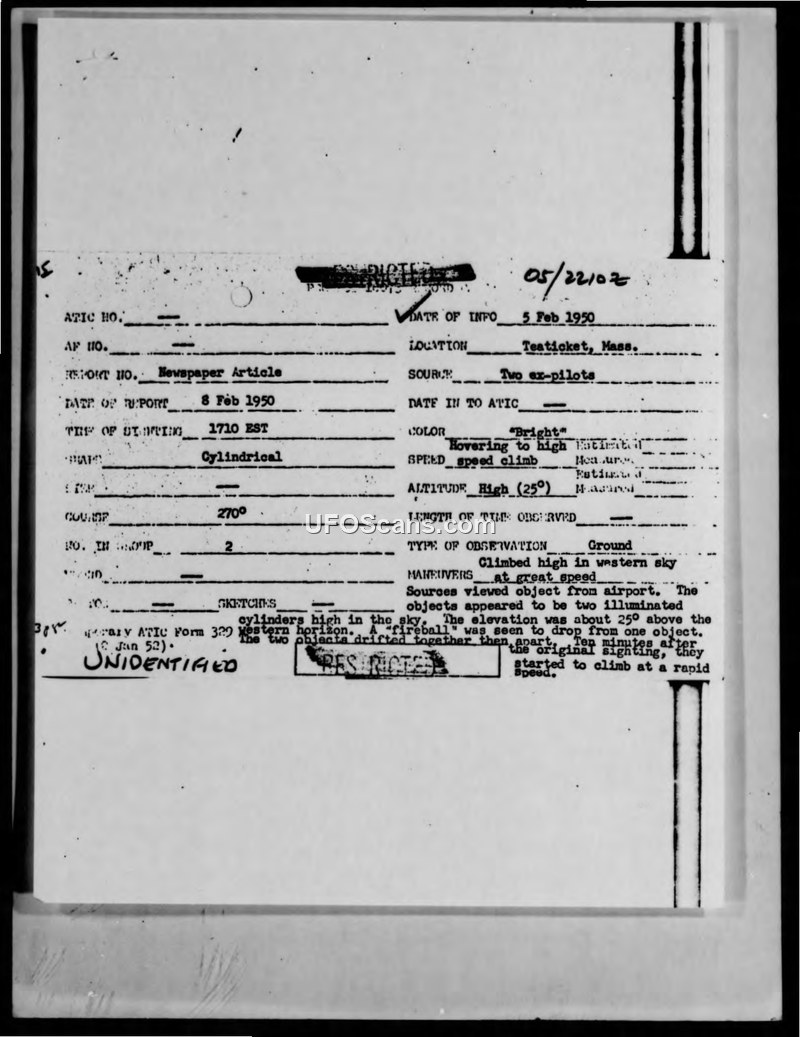 RESTRICTED
05/2210Z
ATIC NO. —
DATE OF INFO 5 Feb 1950
AF NO. —
LOCATION Teaticket, Mass.
REPORT NO. Newspaper Article
SOURCE Two ex-pilots
DATE OF REPORT 8 Feb 1950
DATE IN TO ATIC —
TIME OF SIGHTING 1710 EST
COLOR "Bright"
SHAPE Cylindrical
Hovering to high Estimated
SPEED speed climb Measured
SIZE —
Estimated
ALTITUDE High (25°) Measured
COURSE 270°
LENGTH OF TIME OBSERVED —
UFOScans.com
NO. IN GROUP 2
TYPE OF OBSERVATION Ground
—
Climbed high in western sky
MANEUVERS at great speed
— SKETCHES —
Sources viewed object from airport. The
objects appeared to be two illuminated
cylinders high in the sky. The elevation was about 25° above the
western horizon. A "fireball" was seen to drop from one object.
The two objects drifted together then apart. Ten minutes after
the original sighting, they
started to climb at a rapid
speed.
ATIC Form 329
(2 Jan 52).
UNIDENTIFIED
RESTRICTED